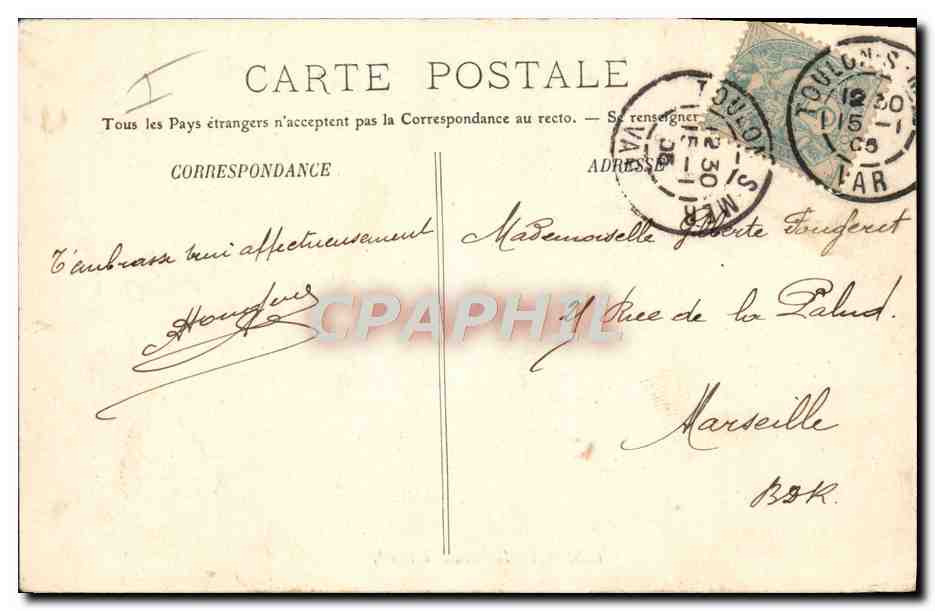 CARTE POSTALE
Tous les Pays étrangers n'acceptent pas la Correspondance au recto. — Se renseigner
CORRESPONDANCE
T'embrasse bien affectueusement
ADRESSE
TOULON-S-MER
12 30
15 - 1
05
VAR
TOULON-S-M
12 30
15 - 1
05
VAR
Mademoiselle Fougeret
21 Rue de la Palud.
Marseille
BDR.
CPAPHIL